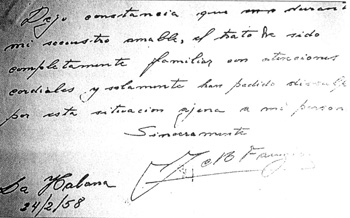 Dejo constancia que en durante
mi secuestro amable, el trato ha sido
completamente familiar con atenciones
cordiales y solamente han pedido disculpa
por esta situacion ajena a mi person
Sinceramente
La Habana
24/2/58